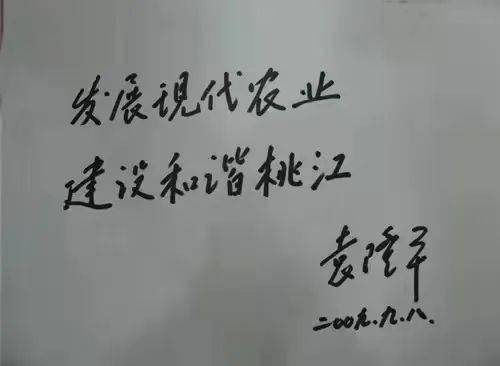 发展現代农业
建设和谐桃江
袁隆平
二00九.九.八.